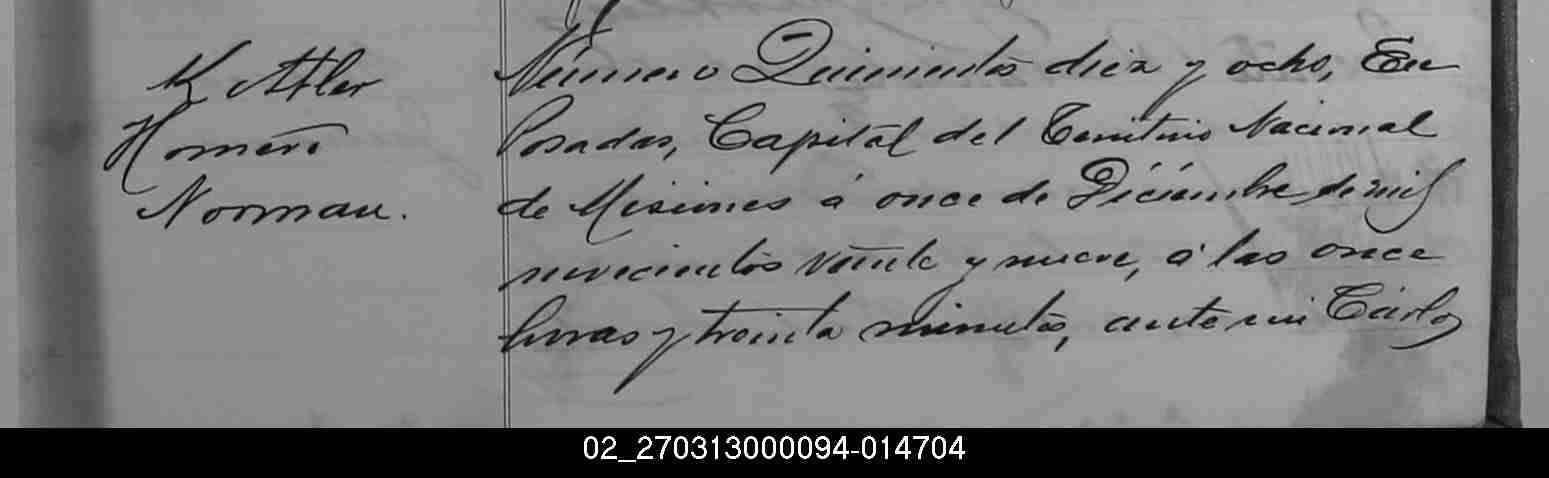 Kettler
Homero
Norman.
Número Quinientos diez y ocho, En
Posadas, Capital del Territorio Nacional
de Misiones á once de Diciembre de mil
novecientos veinte y nueve, á las once
horas y treinta minutos, ante mi Cárlos
02_270313000094-014704